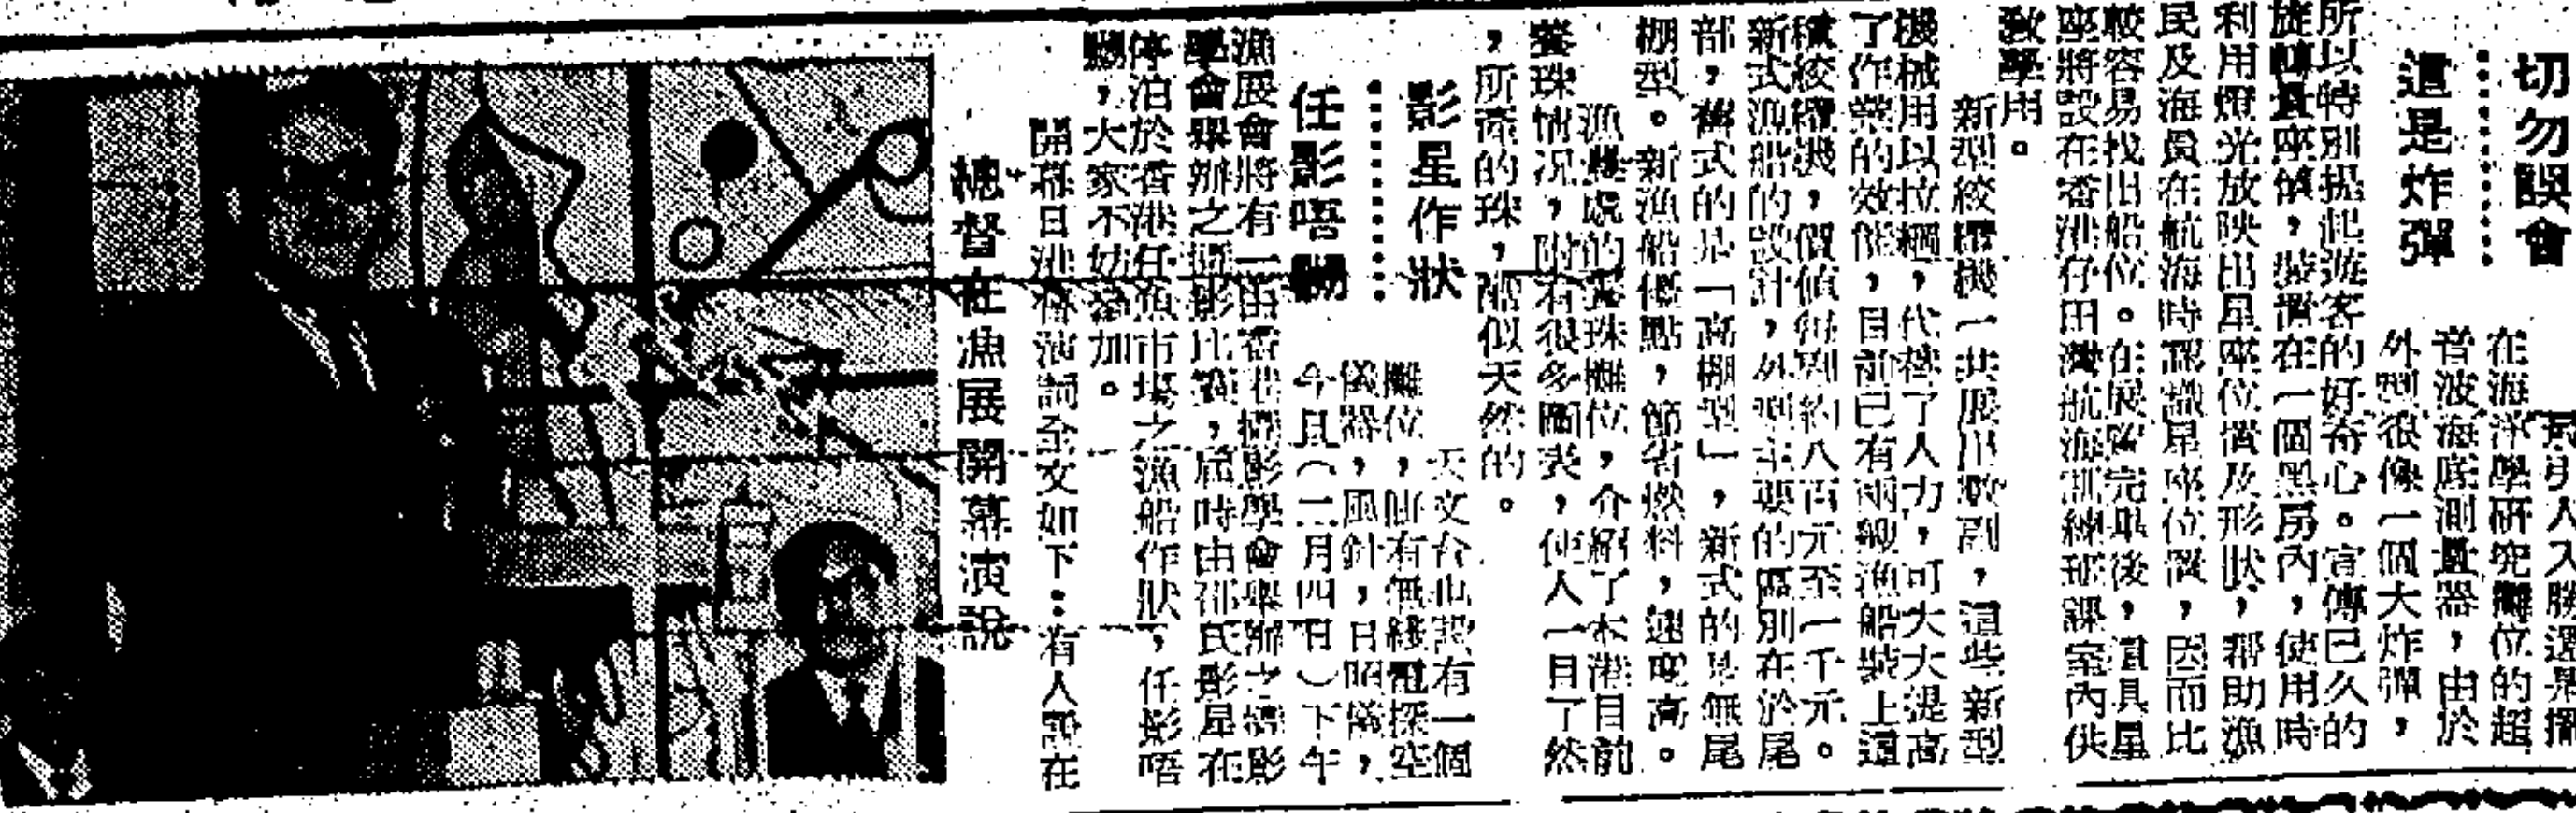 切勿誤會
這是炸彈
在海洋學研究攤位的超
音波海底測量器，由於
外型很像一個大炸彈，
所以特別提起遊客的好奇心。宣傳已久的
旋轉星座儀，裝置在一個黑房內，使用時
利用燈光放映出星座位置及形狀，幫助漁
民及海員在航海時認識星座位置，因而比
較容易找出船位。在展覽完畢後，這具星
座將設在香港仔田灣航海訓練班課室內供
教學用。
新型絞纜機一共展出數副，這些新型
機械用以拉網，代替了人力，可大大提高
了作業的效能，目前已有兩艘漁船裝上這
種絞纜機，價值每副約八百元至一千元。
新式漁船的設計，外型主要的區別在於尾
部，舊式的是「高棚型」，新式的是無尾
棚型。新漁船優點，節省燃料，速度高。
漁農處的養珠攤位，介紹了本港目前
養珠情況，附有很多圖表，使人一目了然
，所產的珠，酷似天然的。
影星作狀
任影唔嬲
天文台也設有一個
攤位，備有無綫電探空
儀器，風針，日照儀，
今日（二月四日）下午
漁展會將有一由香港攝影學會舉辦之攝影
學會舉辦之攝影比賽，屆時由邵氏影星在
停泊於香港仔魚市場之漁船作狀，任影唔
嬲，大家不妨參加。
總督在漁展開幕演說
開幕日港督演詞全文如下：有人說在